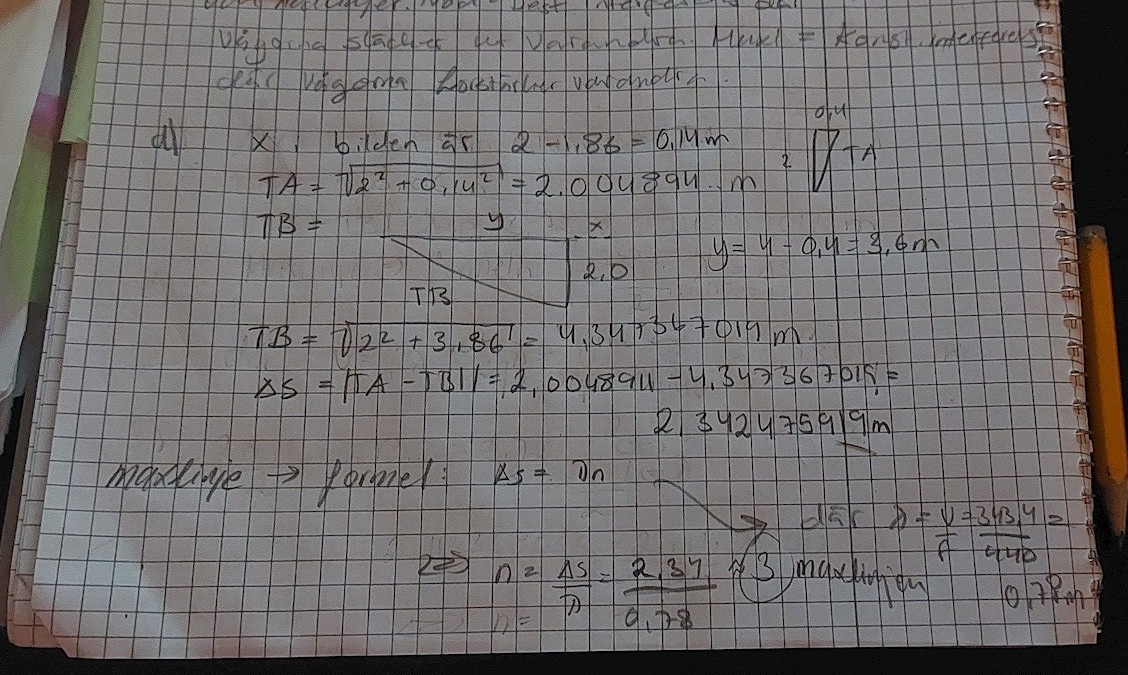 vågorna släcker ut varandra. Max = konst. interferens
där vågorna förstärker varandra.
d) X i bilden är 2 - 1,86 = 0,14 m
0,4
2 TA
TA = √2² + 0,14² = 2,004894.. m
TB =
y x
y = 4 - 0,4 = 3,6 m
2,0
TB
TB = √2² + 3,86² = 4,347367019 m
Δs = |TA - TB| = 2,004894 - 4,347367015 =
2,342475919 m
maxlinje → formel: Δs = λn
där λ = v/f = 343,4/440 =
0,78 m
n = Δs/λ = 2,34/0,78 ≈ 3 maxlinjen
n =